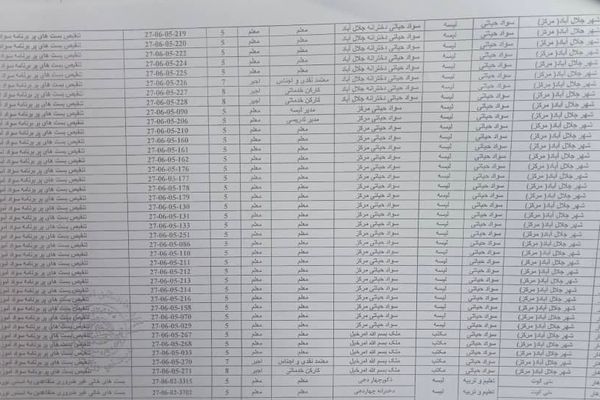 شهر جلال آباد( مرکز) سواد حیاتی لیسه سواد حیاتی دخترانه جلال آباد معلم معلم 5 27-06-05-219 تنقیص بست های پر برنامه سواد
شهر جلال آباد( مرکز) سواد حیاتی لیسه سواد حیاتی دخترانه جلال آباد معلم معلم 5 27-06-05-220 تنقیص بست های پر برنامه سواد
شهر جلال آباد( مرکز) سواد حیاتی لیسه سواد حیاتی دخترانه جلال آباد معلم معلم 5 27-06-05-222 تنقیص بست های پر برنامه سواد
شهر جلال آباد( مرکز) سواد حیاتی لیسه سواد حیاتی دخترانه جلال آباد معلم معلم 5 27-06-05-224 تنقیص بست های پر برنامه سواد
شهر جلال آباد( مرکز) سواد حیاتی لیسه سواد حیاتی دخترانه جلال آباد معلم معلم 5 27-06-05-225 تنقیص بست های پر برنامه سواد
شهر جلال آباد( مرکز) سواد حیاتی لیسه سواد حیاتی دخترانه جلال آباد معتمد نقدی و اجناس اجیر 7 27-06-05-226 تنقیص بست های پر برنامه سواد
شهر جلال آباد( مرکز) سواد حیاتی لیسه سواد حیاتی دخترانه جلال آباد کارکن خدماتی اجیر 8 27-06-05-227 تنقیص بست های پر برنامه سواد
شهر جلال آباد( مرکز) سواد حیاتی لیسه سواد حیاتی دخترانه جلال آباد کارکن خدماتی اجیر 8 27-06-05-228 تنقیص بست های پر برنامه سواد
شهر جلال آباد( مرکز) سواد حیاتی لیسه سواد حیاتی مرکز مدیر لیسه معلم 5 27-06-05-090 تنقیص بست های پر برنامه سواد
شهر جلال آباد( مرکز) سواد حیاتی لیسه سواد حیاتی مرکز مدیر تدریسی معلم 5 27-06-05-206 تنقیص بست های پر برنامه سواد
شهر جلال آباد( مرکز) سواد حیاتی لیسه سواد حیاتی مرکز معلم معلم 5 27-06-05-210 تنقیص بست های پر برنامه سواد
شهر جلال آباد( مرکز) سواد حیاتی لیسه سواد حیاتی مرکز معلم معلم 5 27-06-05-160 تنقیص بست های پر برنامه سواد
شهر جلال آباد( مرکز) سواد حیاتی لیسه سواد حیاتی مرکز معلم معلم 5 27-06-05-161 تنقیص بست های پر برنامه سواد
شهر جلال آباد( مرکز) سواد حیاتی لیسه سواد حیاتی مرکز معلم معلم 5 27-06-05-162 تنقیص بست های پر برنامه سواد
شهر جلال آباد( مرکز) سواد حیاتی لیسه سواد حیاتی مرکز معلم معلم 5 27-06-05-176 تنقیص بست های پر برنامه سواد
شهر جلال آباد( مرکز) سواد حیاتی لیسه سواد حیاتی مرکز معلم معلم 5 27-06-05-177 تنقیص بست های پر برنامه سواد
شهر جلال آباد( مرکز) سواد حیاتی لیسه سواد حیاتی مرکز معلم معلم 5 27-06-05-178 تنقیص بست های پر برنامه سواد
شهر جلال آباد( مرکز) سواد حیاتی لیسه سواد حیاتی مرکز معلم معلم 5 27-06-05-179 تنقیص بست های پر برنامه سواد
شهر جلال آباد( مرکز) سواد حیاتی لیسه سواد حیاتی مرکز معلم معلم 5 27-06-05-130 تنقیص بست های پر برنامه سواد
شهر جلال آباد( مرکز) سواد حیاتی لیسه سواد حیاتی مرکز معلم معلم 5 27-06-05-131 تنقیص بست های پر برنامه سواد
شهر جلال آباد( مرکز) سواد حیاتی لیسه سواد حیاتی مرکز معلم معلم 5 27-06-05-133 تنقیص بست های پر برنامه سواد
شهر جلال آباد( مرکز) سواد حیاتی لیسه سواد حیاتی مرکز معلم معلم 5 27-06-05-251 تنقیص بست های پر برنامه سواد
شهر جلال آباد( مرکز) سواد حیاتی لیسه سواد حیاتی مرکز معلم معلم 5 27-06-05-086 تنقیص بست های پر برنامه سواد
شهر جلال آباد( مرکز) سواد حیاتی لیسه سواد حیاتی مرکز معلم معلم 5 27-06-05-110 تنقیص بست های پر برنامه سواد
شهر جلال آباد( مرکز) سواد حیاتی لیسه سواد حیاتی مرکز معلم معلم 5 27-06-05-211 تنقیص بست های پر برنامه سواد
شهر جلال آباد( مرکز) سواد حیاتی لیسه سواد حیاتی مرکز معلم معلم 5 27-06-05-212 تنقیص بست های پر برنامه سواد
شهر جلال آباد( مرکز) سواد حیاتی لیسه سواد حیاتی مرکز معلم معلم 5 27-06-05-213 تنقیص بست های پر برنامه سواد
شهر جلال آباد( مرکز) سواد حیاتی لیسه سواد حیاتی مرکز معلم معلم 5 27-06-05-214 تنقیص بست های پر برنامه سواد
شهر جلال آباد( مرکز) سواد حیاتی لیسه سواد حیاتی مرکز معلم معلم 5 27-06-05-216 تنقیص بست های پر برنامه سواد
شهر جلال آباد( مرکز) سواد حیاتی لیسه سواد حیاتی مرکز معلم معلم 5 27-06-05-158 تنقیص بست های پر برنامه سواد
شهر جلال آباد( مرکز) سواد حیاتی لیسه سواد حیاتی مرکز معلم معلم 5 27-06-05-070 تنقیص بست های پر برنامه سواد
شهر جلال آباد( مرکز) سواد حیاتی لیسه سواد حیاتی مرکز معلم معلم 5 27-06-05-029 تنقیص بست های پر برنامه سواد
شهر جلال آباد( مرکز) سواد حیاتی مکتب ملک بسم الله امرخیل معلم معلم 5 27-06-05-267 تنقیص بست های پر برنامه سواد
شهر جلال آباد( مرکز) سواد حیاتی مکتب ملک بسم الله امرخیل معلم معلم 5 27-06-05-268 تنقیص بست های پر برنامه سواد
شهر جلال آباد( مرکز) سواد حیاتی مکتب ملک بسم الله امرخیل معلم معلم 5 27-06-05-033 تنقیص بست های پر برنامه سواد
شهر جلال آباد( مرکز) سواد حیاتی مکتب ملک بسم الله امرخیل معتمد نقدی و اجناس اجیر 7 27-06-05-270 تنقیص بست های پر برنامه سواد
شهر جلال آباد( مرکز) سواد حیاتی مکتب ملک بسم الله امرخیل کارکن خدماتی اجیر 8 27-06-05-271 تنقیص بست های پر برنامه سواد
بتی کوت تعلیم و تربیه لیسه ذکور چهاردهی معلم معلم 5 27-06-02-3315 بست های خالی غیر ضروری
بتی کوت تعلیم و تربیه لیسه دخترانه چهاردهی معلم معلم 5 27-06-02-3702 بست های خالی غیر ضروری